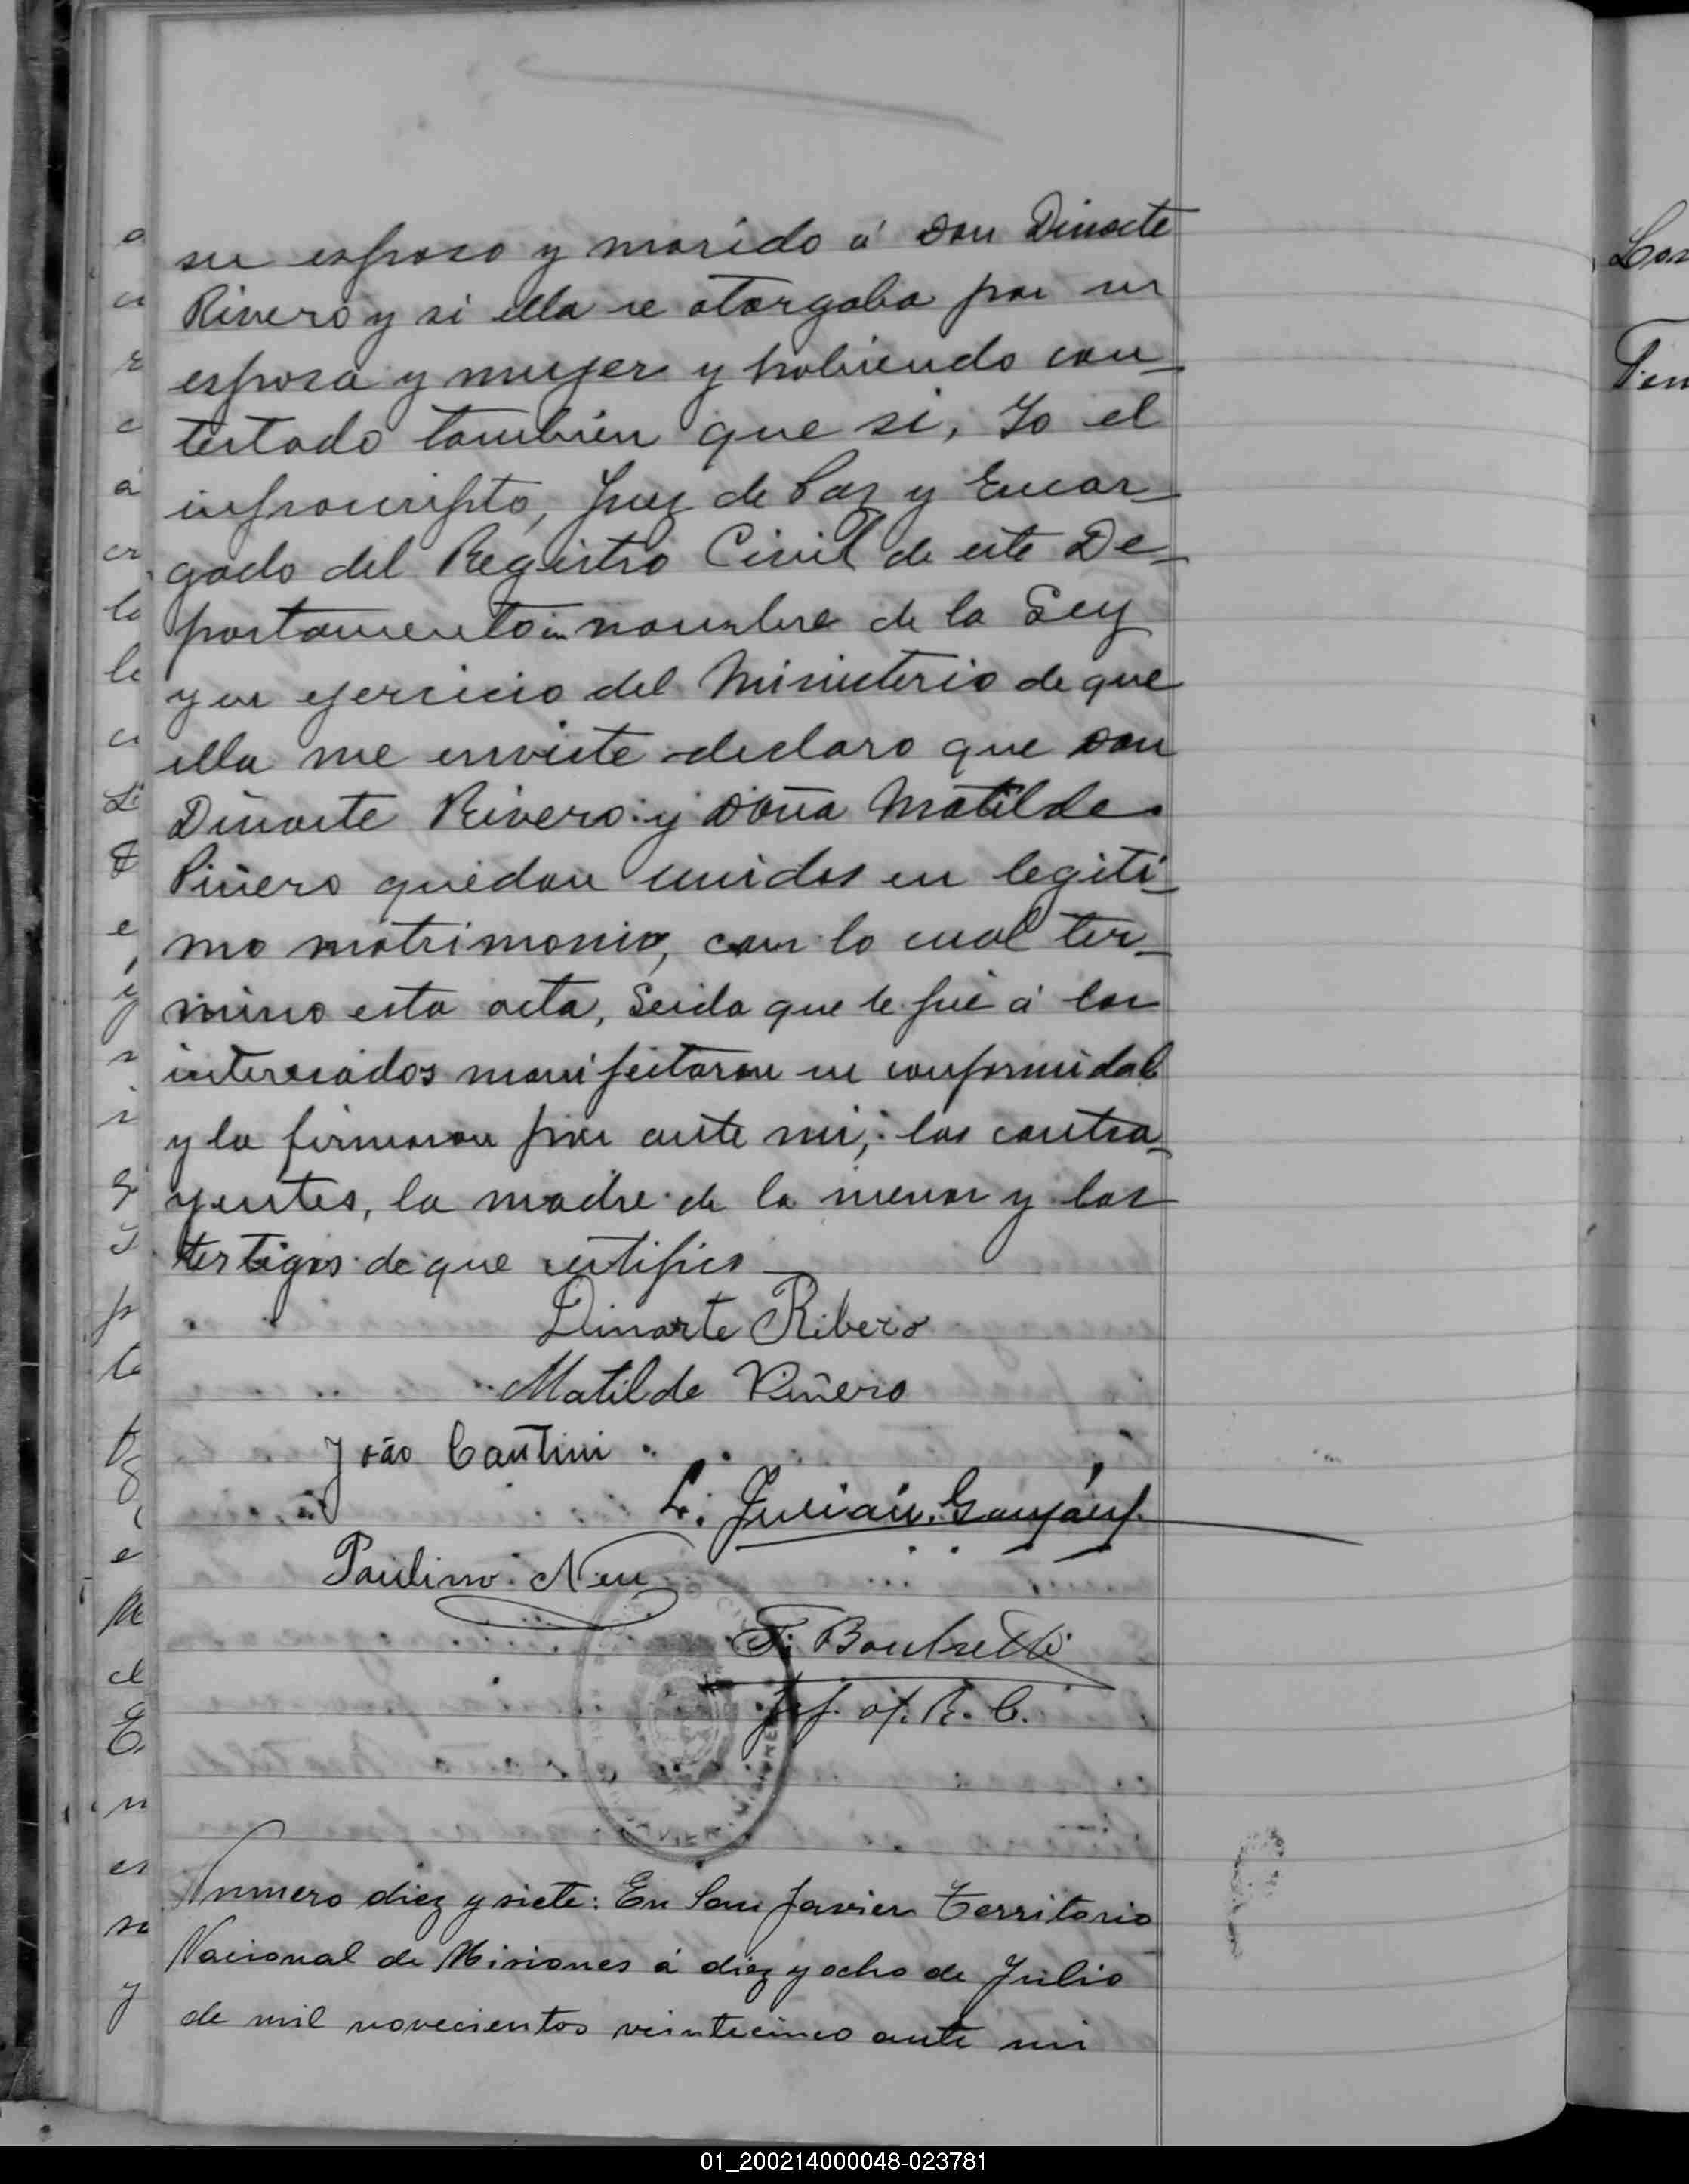 su esposo y marido á Don Dinarte
Rivero y si ella se otorgaba por su
esposa y mujer y habiendo con-
testado tambien que si, Yo el
infrascripto, Juez de Paz y Encar-
gado del Registro Civil de este De-
partamento en nombre de la Ley
y en ejercicio del Ministerio de que
ella me enviste declaro que Don
Dinarte Rivero y Doña Matilde
Piñero quedan unidos en legiti-
mo matrimonio, con lo cual ter-
mino esta acta, Leida que le fué á los
interesados manifestaron su conformidad
y la firmaron por ante mi, los contra-
yentes, la madre de la menor y los
testigos de que certifico
Dinarte Ribero
Matilde Piñero
João Cantini
L. Julián
Paulino Neu
F.
R. C.
Numero diez y siete: En San Javier Territorio
Nacional de Misiones á diez y ocho de Julio
de mil novecientos veinticinco ante mi
01_200214000048-023781